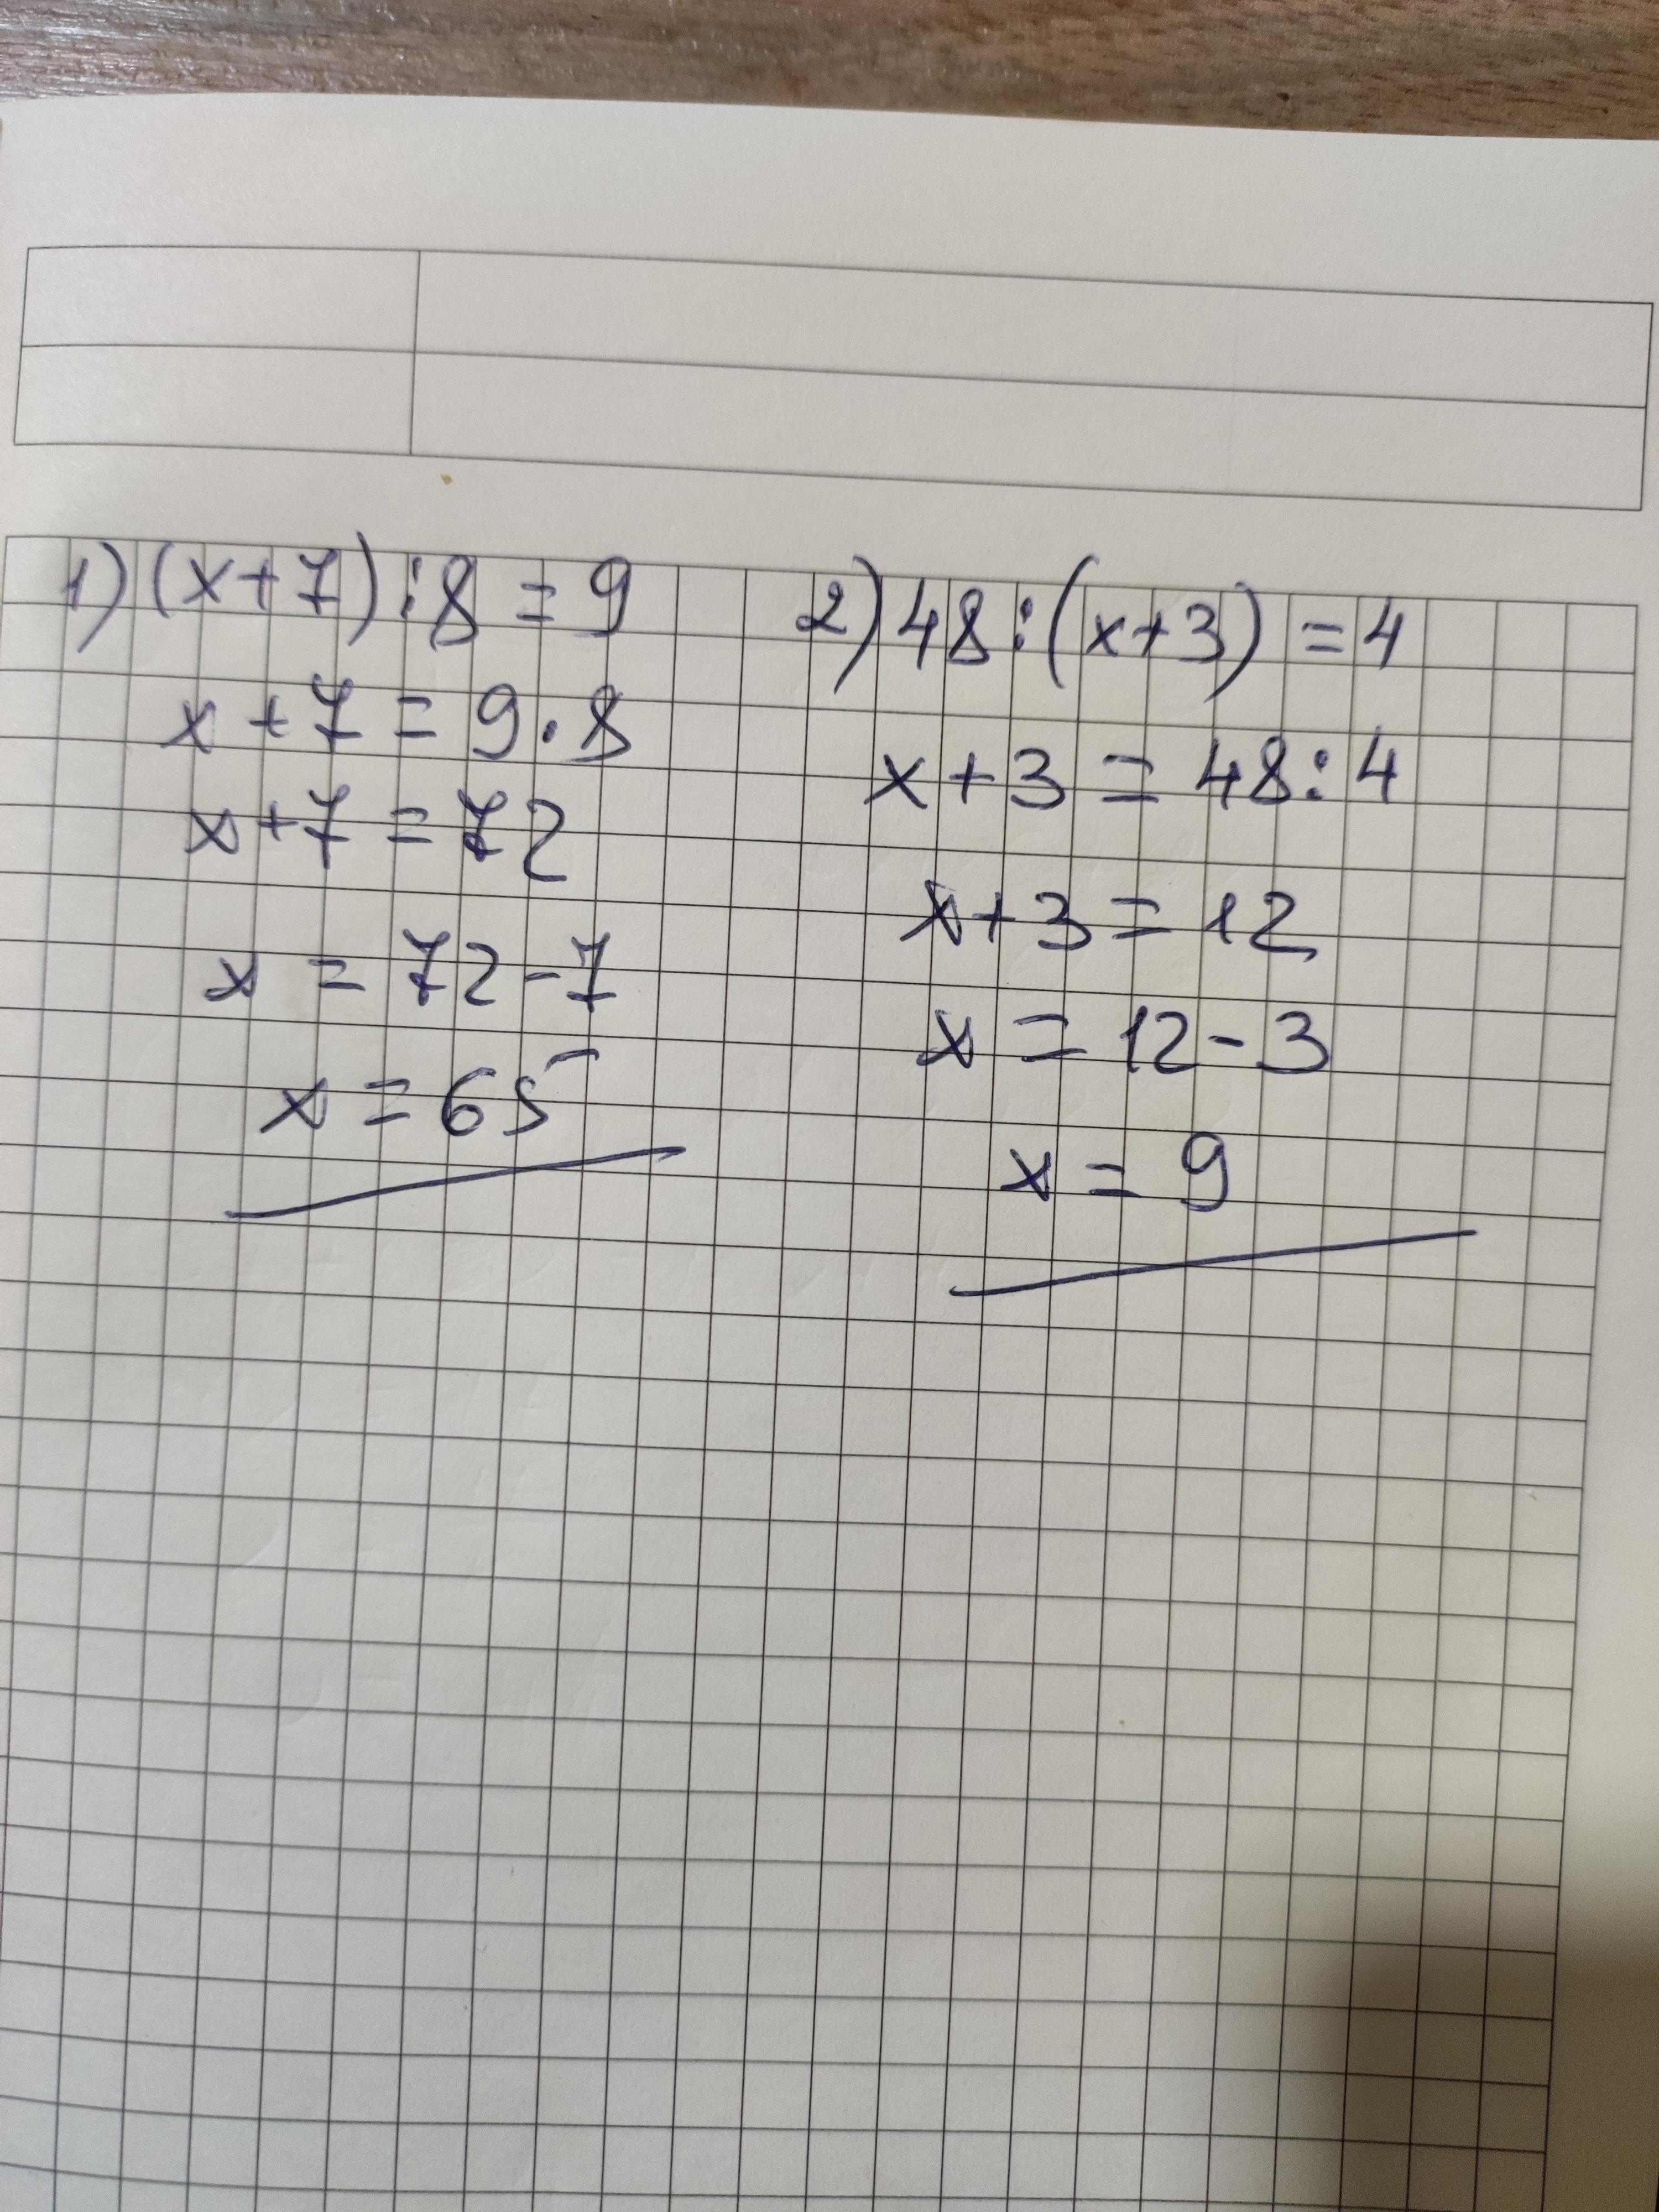 1) (x+7) : 8 = 9
x + 7 = 9 · 8
x + 7 = 72
x = 72 - 7
x = 65
2) 48 : (x+3) = 4
x + 3 = 48 : 4
x + 3 = 12
x = 12 - 3
x = 9